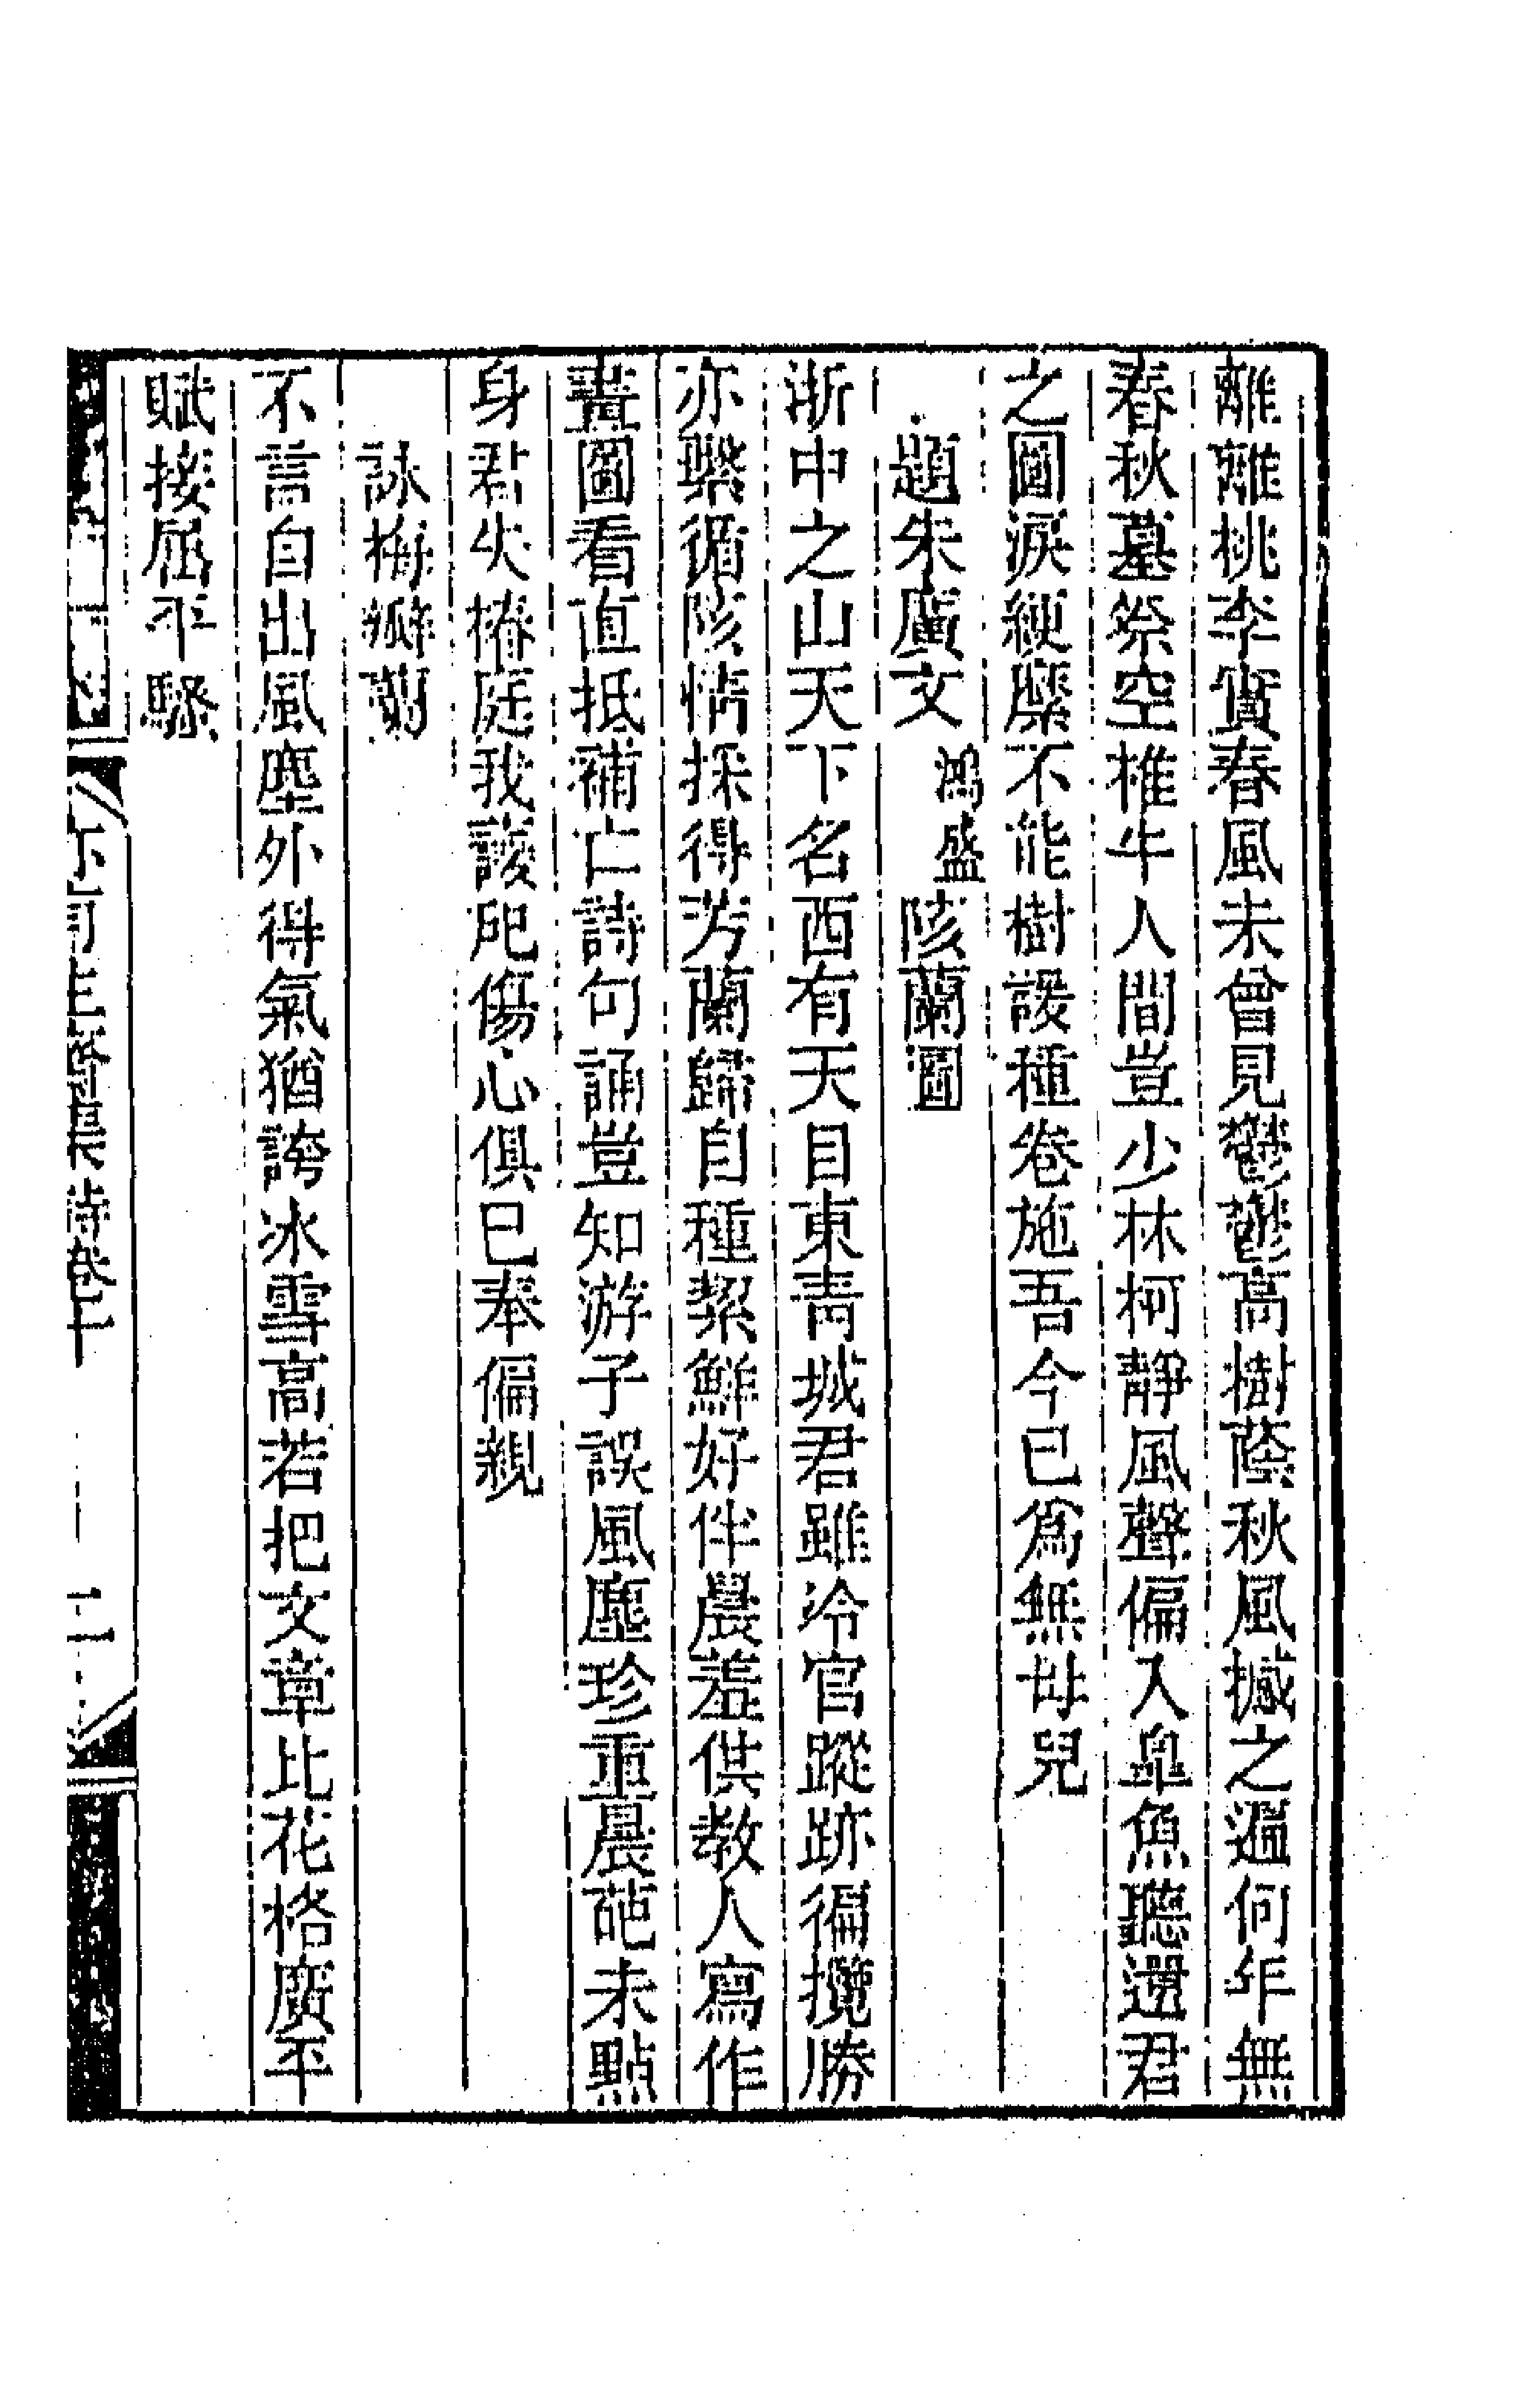 離離桃李實春風未曾見鬱鬱高樹蔭秋風撼之遍何年無
春秋墓祭空椎牛人間豈少林柯靜風聲偏入臯魚聽還君
之圖淚綆縻不能樹諼種卷施吾今已爲無母兒
題朱廣文鴻盛陔蘭圖
浙中之山天下名西有天目東青城君雖冷官蹤跡徧攬勝
亦繄循陔情採得芳蘭歸自種絜鮮好伴晨羞供教人寫作
畫圖看直抵補亡詩句誦豈知游子誤風塵珍重晨葩未點
身君失椿庭我諼兒傷心俱已奉偏親
詠梅瓣蘭
不言自出風塵外得氣猶誇冰雪高若把文章比花格廣平
賦接屈平騷
集詩卷十
二